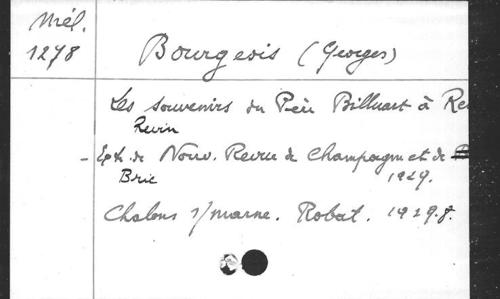 Mél.
1278
Bourgeois (Georges)
Les souvenirs du Père Billuart à Re
Revin
- Extr. de Nouv. Revue de Champagne et de B
Brie 1929.
Chalons s/marne. Robat. 1929. 8.